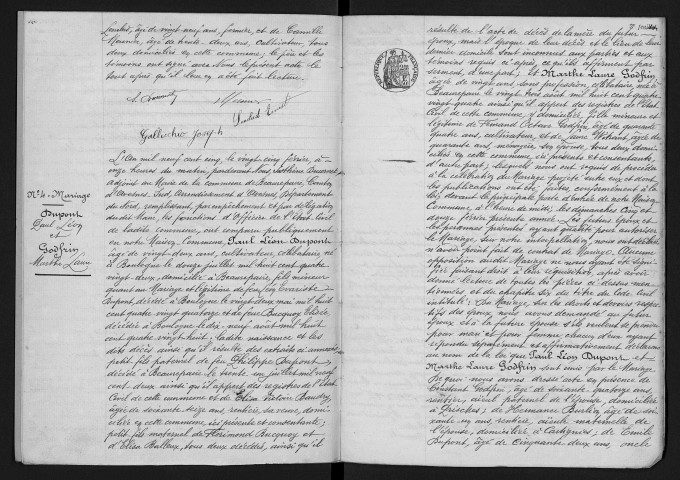 Lambert, âgé de vingt neuf ans, fermier, et de Camille
Meunier, âgé de trente deux ans, cultivateur, tous
deux domiciliés en cette commune, le père et les
témoins ont signé avec Nous le présent acte le
tout après qu'il leur en a été fait lecture.
Gallochio Joseph
L'an mil neuf cent cinq, le vingt cinq février, à
onze heures du matin, pardevant Nous
adjoint au Maire de la commune de Beaurepaire, Canton
d'Avesnes Sud, Arrondissement d'Avesnes, Département
du Nord, remplissant, par empêchement et par délégation
du dit Maire, les fonctions d'Officier de l'Etat Civil
de ladite commune, ont comparu publiquement
en notre Maison Commune, Paul Léon Dupont
âgé de vingt deux ans, cultivateur, célibataire, né
à Boulogne le douze juillet mil huit cent quatre
vingt deux, domicilié à Beaurepaire, fils mineur
quant au Mariage et légitime de feu Evariste
Dupont, décédé à Boulogne le vingt deux mai mil huit
cent quatre vingt quatorze et de feue Bucquoy Elisée
décédée à Boulogne le dix neuf août mil huit
cent quatre vingt huit; ladite naissance et les
dits décès ainsi qu'il résulte des extraits ci annexés
petit fils paternel de feu Philippe Dupont
décédé à Beaurepaire le trente un juillet mil neuf
cent deux ainsi qu'il appert des registres de l'Etat
Civil de cette commune et de Elisa Victoire Baudry
âgée de soixante seize ans, rentière, sa veuve, domici
liée en cette commune, ici présente et consentante;
petit fils maternel de Florimond Bucquoy et
d'Elisa Halleux, tous deux décédés, ainsi qu'il
N° 4. Mariage
Dupont
Paul Léon
et
Godfrin
Marthe Laure
résulte de l'acte de décès de la mère du futur
époux, mais l'époque de leur décès et le lieu de leur
dernier domicile sont inconnus aux parties et aux
témoins requis ci après, ce qu'ils affirment par
serment, d'une part; et Marthe Laure Godfrin,
âgée de vingt ans, sans profession, célibataire, née à
Beaurepaire le vingt trois août mil huit cent quatre
vingt quatre ainsi qu'il appert des registres de l'Etat
Civil de cette commune, y domiciliée, fille mineure et
légitime de Fernand Octave Godfrin, âgé de quarante
quatre ans, cultivateur, et de Laure Wohant, âgée de
quarante ans, ménagère, son épouse, tous deux domi
ciliés en cette commune, ici présents et consentants,
d'autre part; lesquels nous ont requis de procéder
à la célébration du Mariage projeté entre eux et dont
les publications ont été faites, conformément à la
loi, devant la principale porte d'entrée de notre Maison
Commune, à l'heure de midi; les dimanches cinq et
douze février présente année. Les futurs époux et
les personnes présentes ayant qualité pour autoriser
le Mariage, sur notre interpellation, nous ont déclaré
n'avoir point fait de contrat de Mariage. Aucune
opposition au dit Mariage ne nous ayant été signi
fiée faisant droit à leur réquisition, après avoir
donné lecture de toutes les pièces ci dessus men
tionnées et du chapitre six du titre du Code Civil
intitulé: Du Mariage, sur les droits et devoirs respec
tifs des époux, nous avons demandé au futur
époux et à la future épouse s'ils veulent se prendre
pour mari et pour femme; chacun d'eux ayant
répondu séparément et affirmativement, déclarons
au nom de la loi que Paul Léon Dupont et
Marthe Laure Godfrin sont unis par le Mariage.
De quoi nous avons dressé acte en présence de
Constant Godfrin, âgé de soixante quatorze ans,
rentier, aïeul paternel de l'épouse, domicilié
à Prisches; de Hermance Burlion, âgée de soi
xante un ans, rentière, aïeule maternelle de
l'épouse, domiciliée à Cartignies; de Emile
Dupont, âgé de Cinquante deux ans, oncle